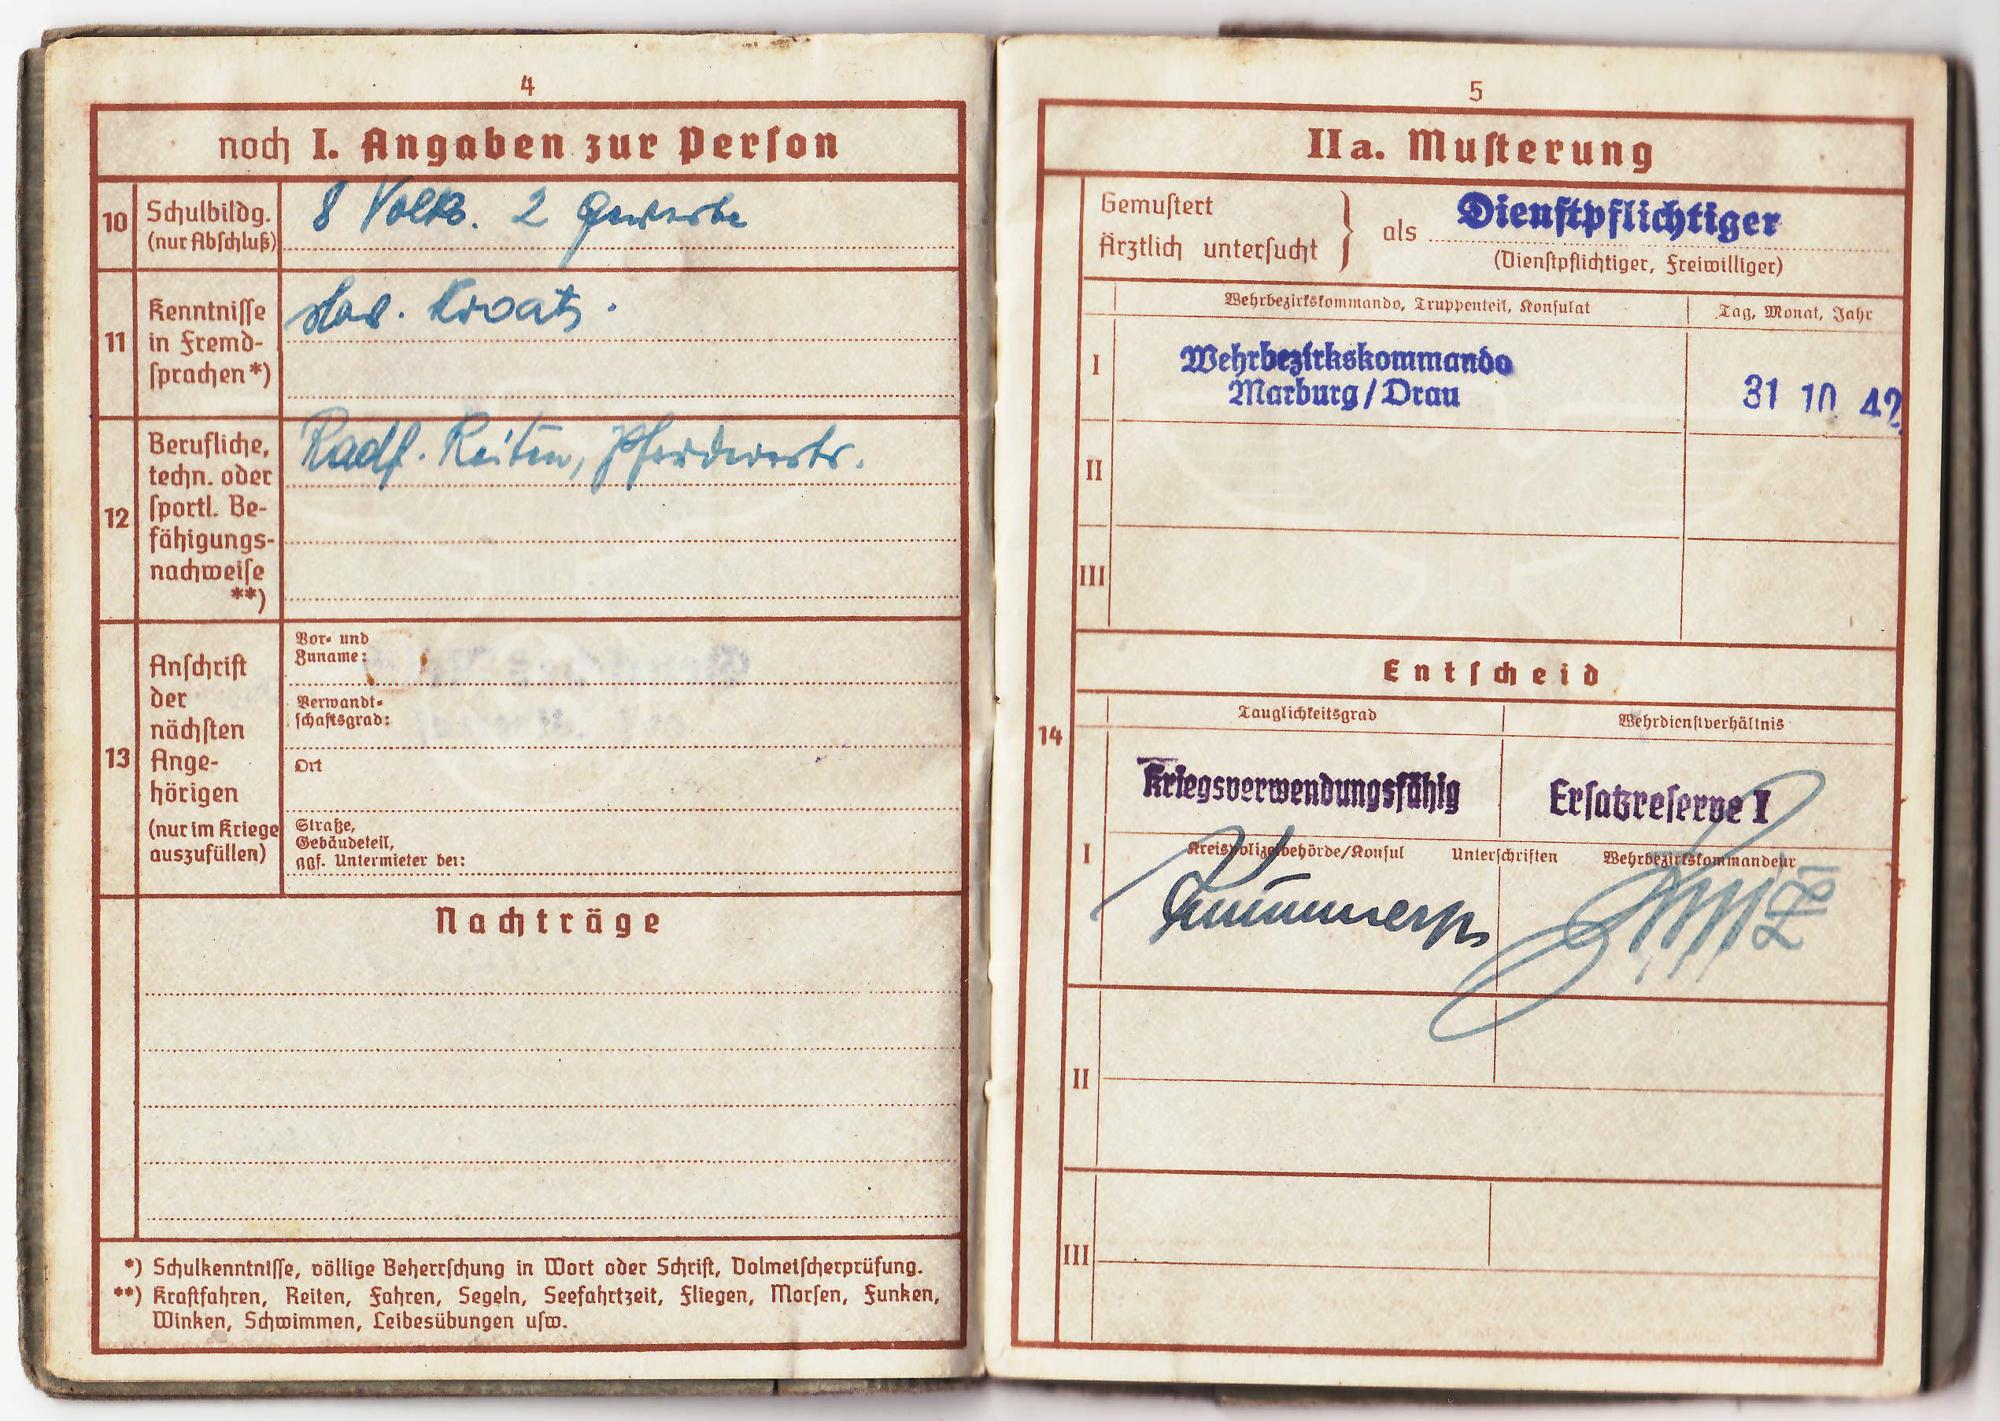 4
noch I. Angaben zur Perſon
10
Schulbildg.
(nur Abſchluß)
8 Volks. 2 Gewerbe
11
Kenntniſſe
in Fremd-
ſprachen*)
slov. Kroat.
12
Berufliche,
techn. oder
ſportl. Be-
fähigungs-
nachweiſe
**)
Radf. Reiten,
13
Anſchrift
der
nächſten
Ange-
hörigen
(nur im Kriege
auszufüllen)
Vor- und
Zuname:
Verwandt-
ſchaftsgrad:
Ort
Straße,
Gebäudeteil,
ggf. Untermieter bei:
Nachträge
*) Schulkenntniſſe, völlige Beherrſchung in Wort oder Schrift, Dolmetſcherprüfung.
**) Kraftfahren, Reiten, Fahren, Segeln, Seefahrtzeit, Fliegen, Morſen, Funken,
Winken, Schwimmen, Leibesübungen uſw.
5
IIa. Muſterung
Gemuſtert
Ärztlich unterſucht
als Dienſtpflichtiger
(Dienſtpflichtiger, Freiwilliger)
Wehrbezirkskommando, Truppenteil, Konſulat
Tag, Monat, Jahr
I
Wehrbezirkskommando
Marburg/Drau
31 10 42
II
III
Entſcheid
14
Tauglichkeitsgrad
Wehrdienſtverhältnis
I
Kriegsverwendungsfähig
Erſatzreſerve I
Kreispolizeibehörde/Konſul Unterſchriften Wehrbezirkskommandeur
II
III